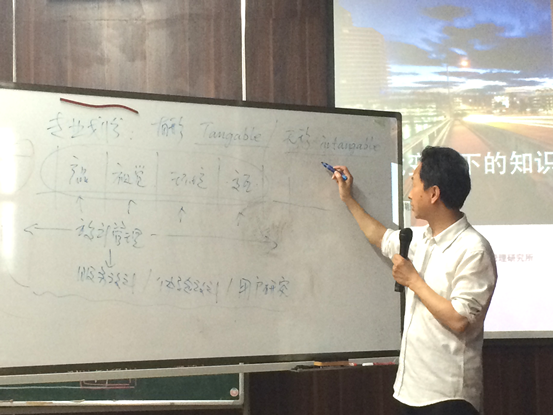 专业划分: 有形 Tangable / 无形 intangable
产品 视觉 环境 交互
设计管理
服务设计 / 体验设计 / 用户研究
下的知识
研究所